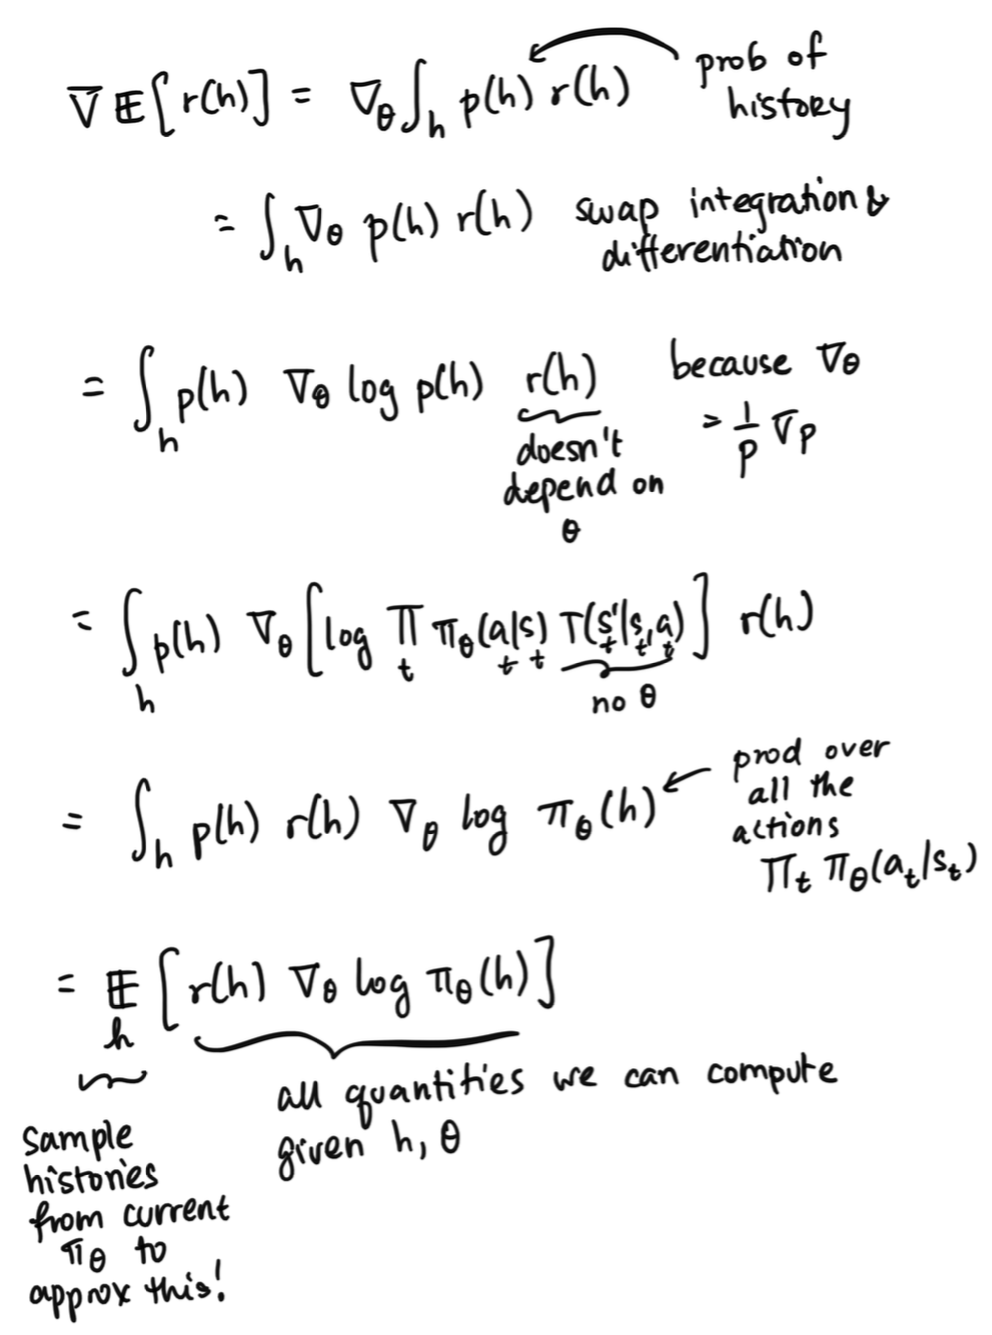 ∇ 𝔼[r(h)] = ∇_θ ∫_h p(h) r(h)
prob of
history
= ∫_h ∇_θ p(h) r(h)
swap integration &
differentiation
= ∫_h p(h) ∇_θ log p(h) r(h)
because ∇_θ
= 1/p ∇p
doesn't
depend on
θ
= ∫_h p(h) ∇_θ [log ∏_t π_θ(a_t|s_t) T(s'_t|s_t, a_t)] r(h)
no θ
= ∫_h p(h) r(h) ∇_θ log π_θ(h)
prod over
all the
actions
∏_t π_θ(a_t|s_t)
= 𝔼_h [r(h) ∇_θ log π_θ(h)]
all quantities we can compute
given h, θ
sample
histories
from current
π_θ to
approx this!